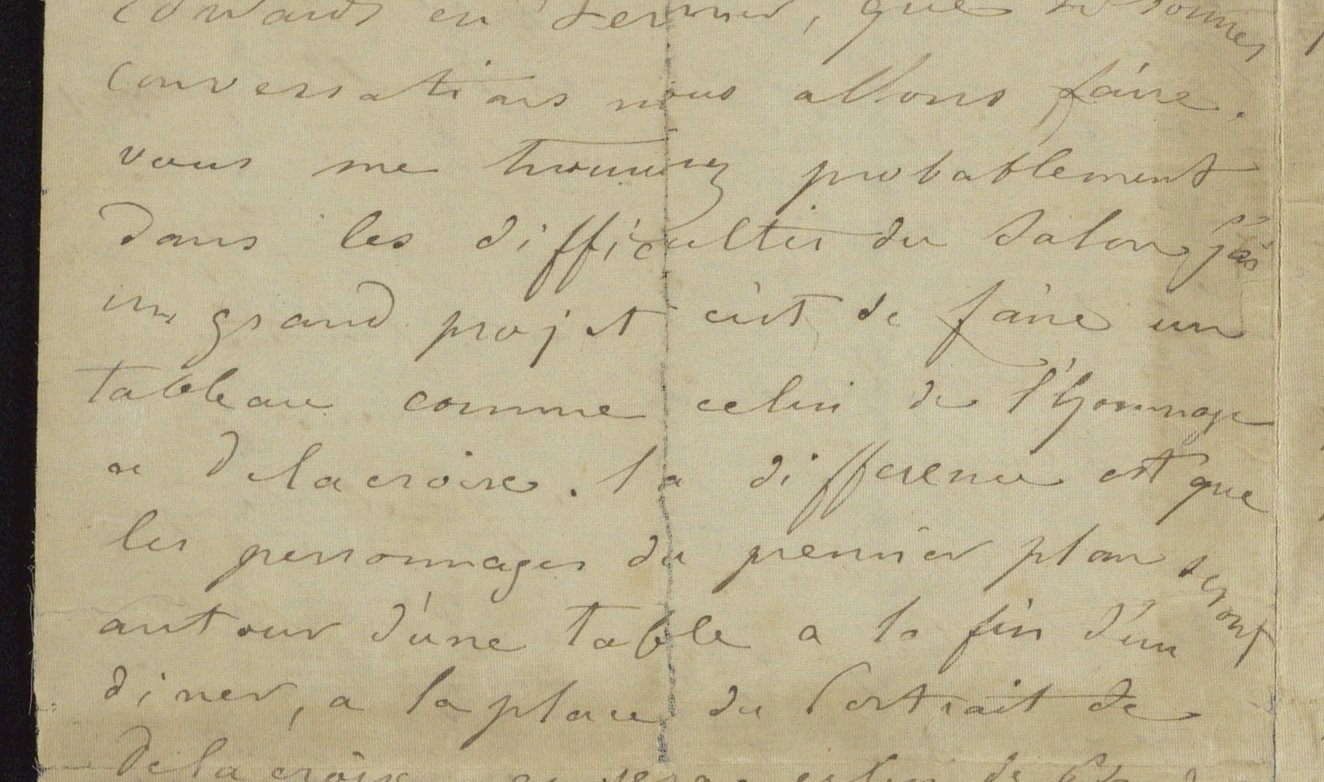 Edwards en fevrier, que de bonnes
conversations nous allons faire.
vous me trouverez probablement
dans les difficultés du Salon, j'ai
un grand projet c'est de faire un
tableau comme celui de l'Hommage
a Delacroix. la difference est que
les personnages du premier plan seront
autour d'une table a la fin d'un
diner, a la place du Portrait de
Delacroix, ce sera celui de